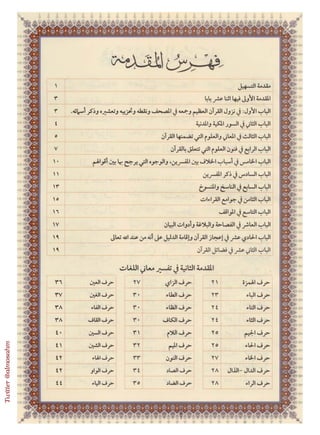 فهرس المقدمة
مقدمة التسهيل ١
المقدمة الأولى فيها اثنا عشر بابا ٣
الباب الأول: في نزول القرآن العظيم وجمعه في المصحف ونقطه وتحزيبه وتعشيره وذكر أسمائه. ٣
الباب الثاني في السور المكية والمدنية ٤
الباب الثالث في المعاني والعلوم التي تضمنها القرآن ٥
الباب الرابع في فنون العلوم التي تتعلق بالقرآن ٧
الباب الخامس في أسباب الخلاف بين المفسرين، والوجوه التي يرجح بها بين أقوالهم ١٠
الباب السادس في ذكر المفسرين ١١
الباب السابع في الناسخ والمنسوخ ١٣
الباب الثامن في جوامع القراءات ١٥
الباب التاسع في المواقف ١٦
الباب العاشر في الفصاحة والبلاغة وأدوات البيان ١٧
الباب الحادي عشر في إعجاز القرآن وإقامة الدليل على أنه من عند الله تعالى ١٩
الباب الثاني عشر في فضائل القرآن ١٩
المقدمة الثانية في تفسير معاني اللغات
حرف الهمزة ٢١ حرف الزاي ٢٧ حرف العين ٣٦
حرف الباء ٢٣ حرف الطاء ٣٠ حرف الغين ٣٧
حرف التاء ٢٤ حرف الظاء ٣٠ حرف الفاء ٣٨
حرف الثاء ٢٤ حرف الكاف ٣٠ حرف القاف ٣٨
حرف الجيم ٢٥ حرف اللام ٣١ حرف السين ٤٠
حرف الحاء ٢٥ حرف الميم ٣٢ حرف الشين ٤١
حرف الخاء ٢٧ حرف النون ٣٣ حرف الهاء ٤٢
حرف الدال -الذال ٢٨ حرف الصاد ٣٤ حرف الواو ٤٢
حرف الراء ٢٨ حرف الضاد ٣٥ حرف الياء ٤٤